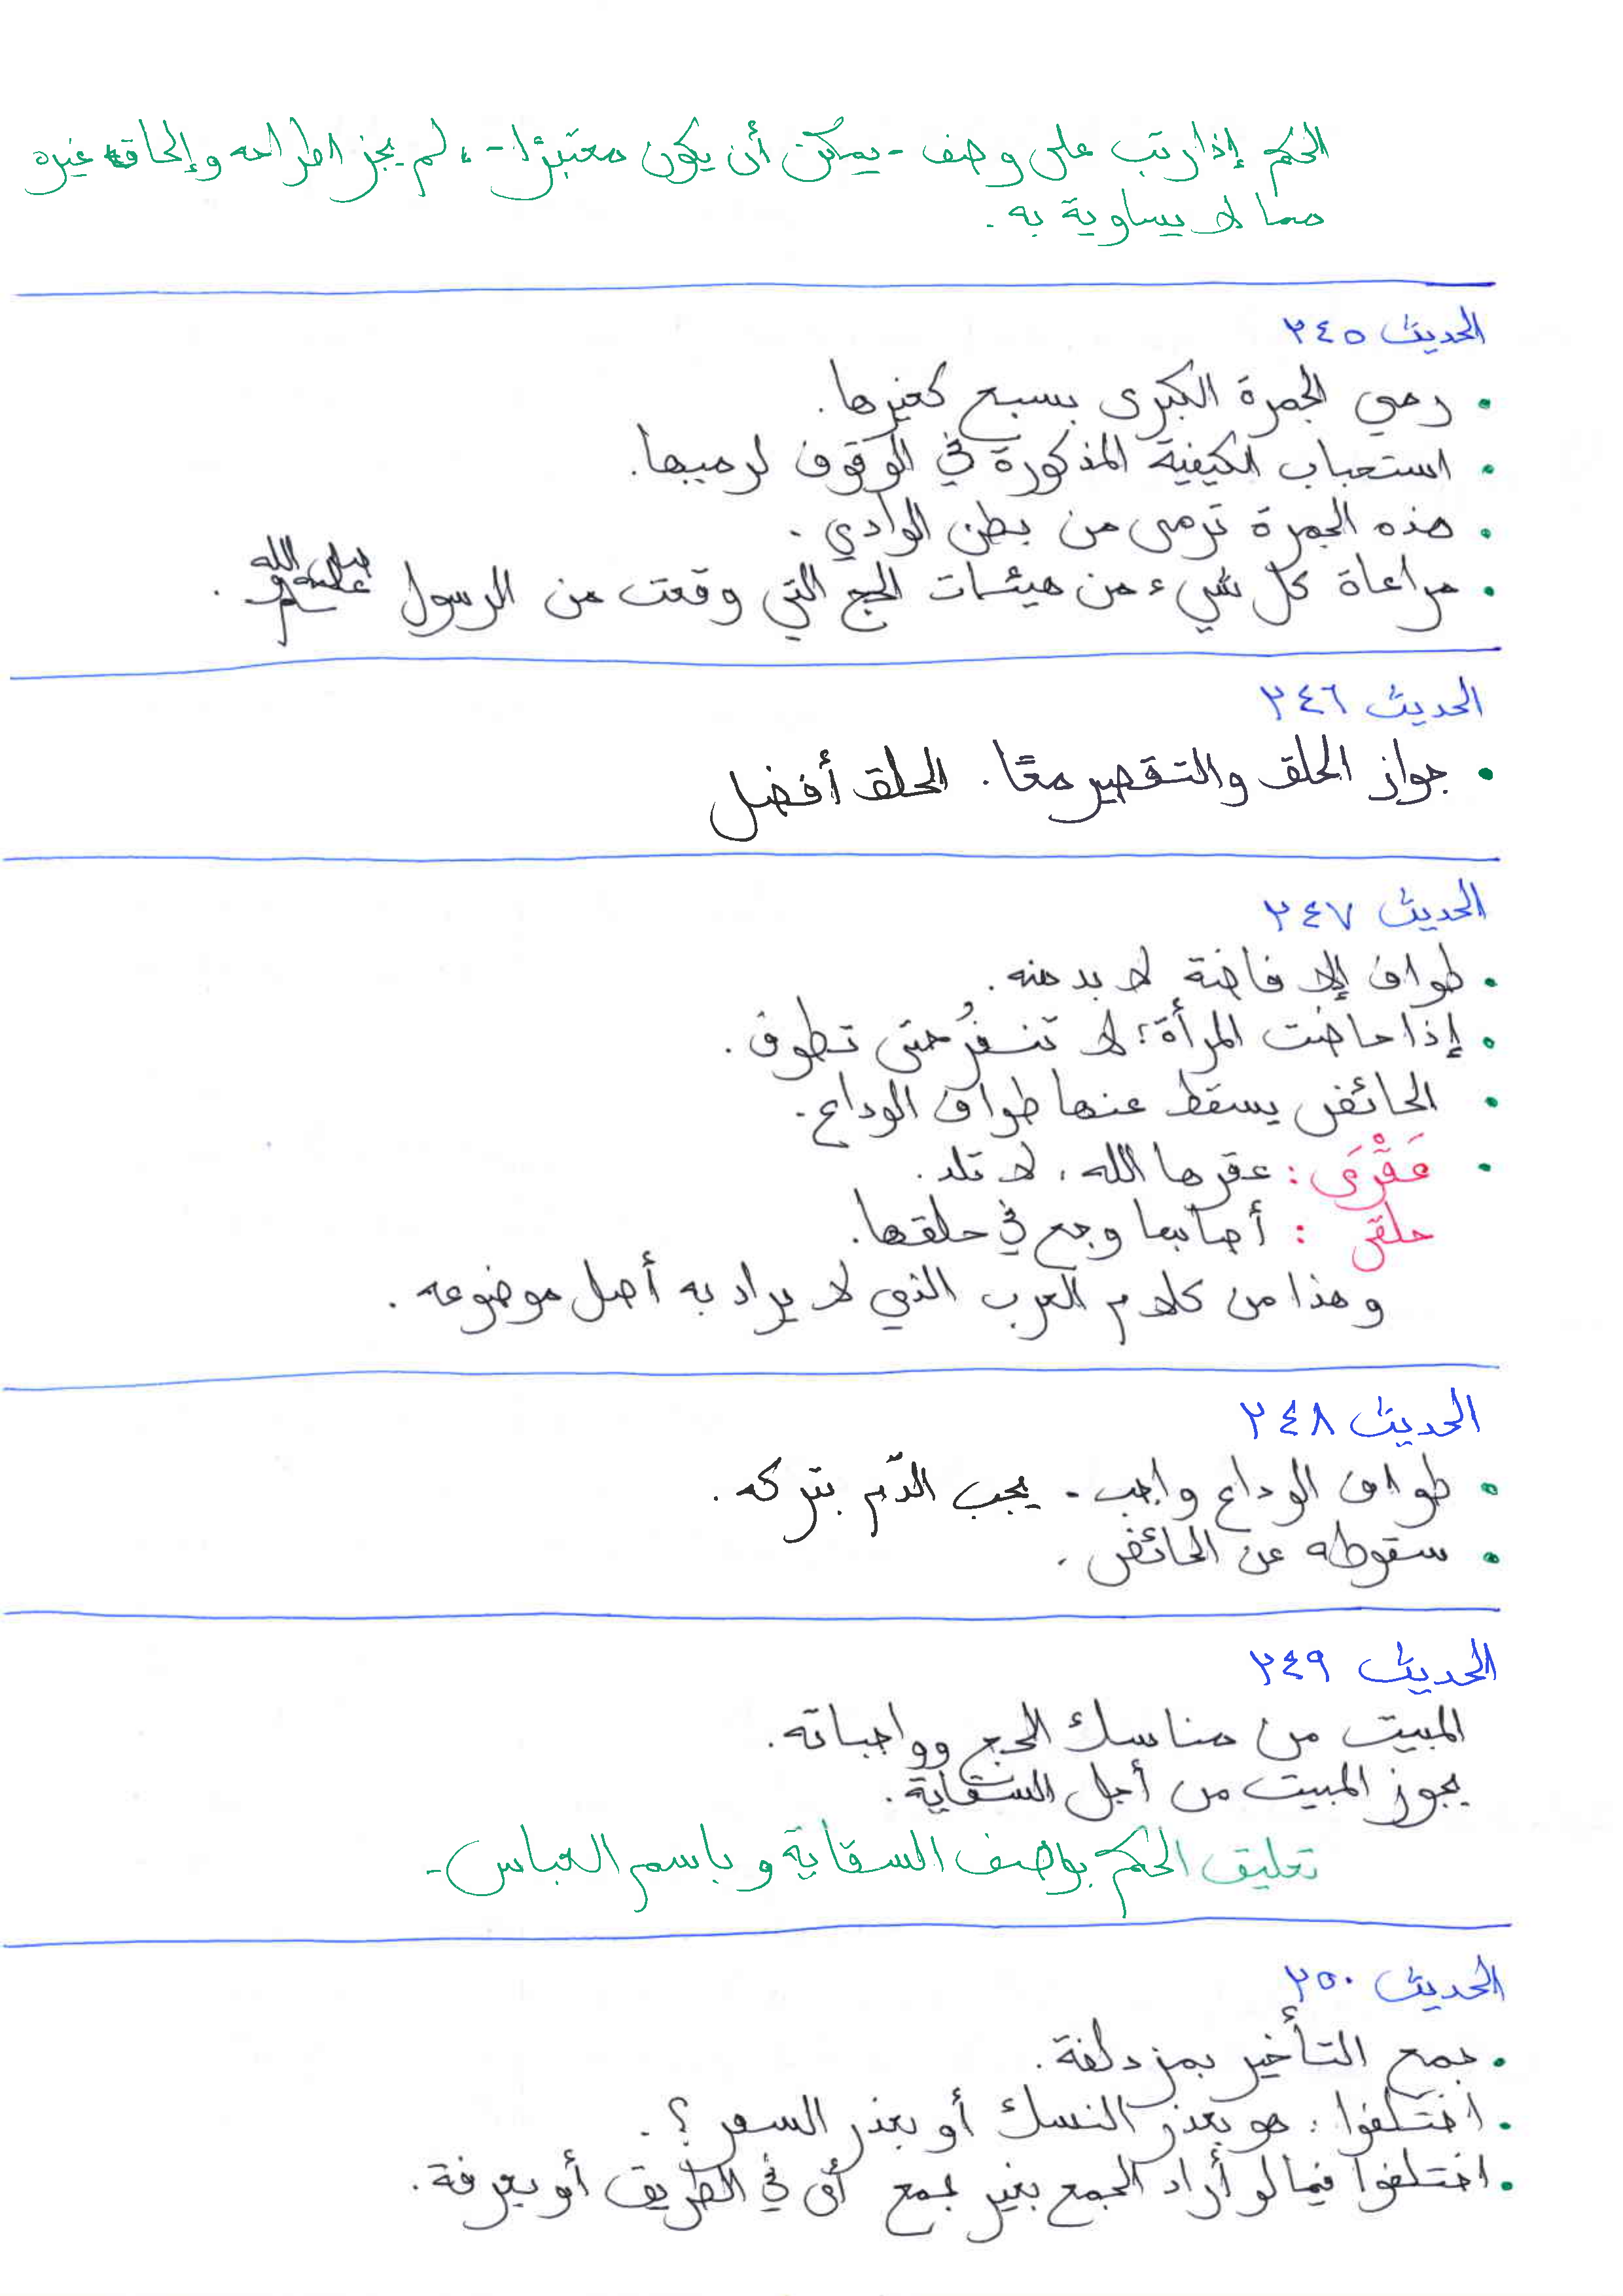 الحكم إذا رتب على وصف - يمكن أن يكون معتبرًا - ، لم يجز اطراحه وإلحاق غيره
مما لا يساوية به .
الحديث ٢٤٥
• رمي الجمرة الكبرى بسبع كغيرها .
• استحباب الكيفية المذكورة في الوقوف لرميها .
• هذه الجمرة ترمى من بطن الوادي .
• مراعاة كل شيء من هيئات الحج التي وقعت من الرسول صلى الله عليه وسلم .
الحديث ٢٤٦
• جواز الحلق والتقصير معًا . الحلق أفضل
الحديث ٢٤٧
• طواف الإفاضة لا بد منه .
• إذا حاضت المرأة ؛ لا تنفُر حتى تطوف .
• الحائض يسقط عنها طواف الوداع .
• عَقْرَى : عقرها الله ، لا تلد .
حلقى : أصابها وجع في حلقها .
وهذا من كلام العرب الذي لا يراد به أصل موضوعه .
الحديث ٢٤٨
• طواف الوداع واجب - يجب الدّم بتركه .
• سقوطه عن الحائض .
الحديث ٢٤٩
المبيت من مناسك الحج وواجباته .
يجوز المبيت من أجل السقاية .
تعليق الحكم بوصف السقاية وباسم العباس -
الحديث ٢٥٠
• جمع التأخير بمزدلفة .
• اختلفوا : هو بعذر النسك أو بعذر السفر ؟ .
• اختلفوا فيما لو أراد الجمع بغير جمع أي في الطريق أو بعرفة .